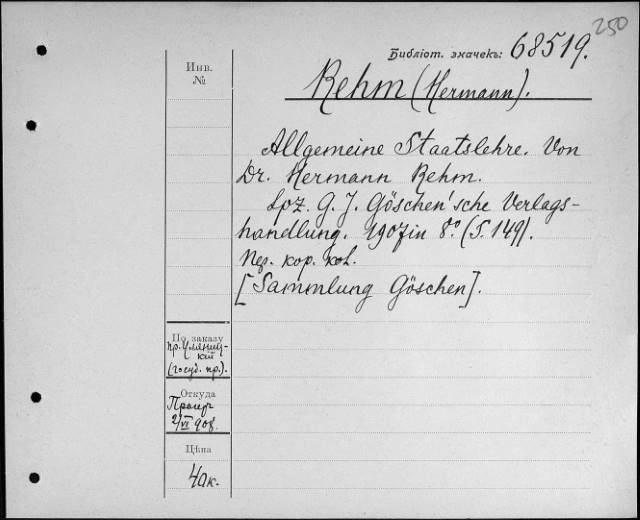 250
Библіот. значекъ: 68519.
Инв.
№
Rehm (Hermann).
Allgemeine Staatslehre. Von
Dr. Hermann Rehm.
Lpz. G. J. Göschen'sche Verlags-
handlung. 1907 in 8º. (S. 149).
Пер. кор. кол.
[Sammlung Göschen].
По заказу
пр.
(госуд. пр.).
Откуда
2/VI 908.
Цѣна
40к.